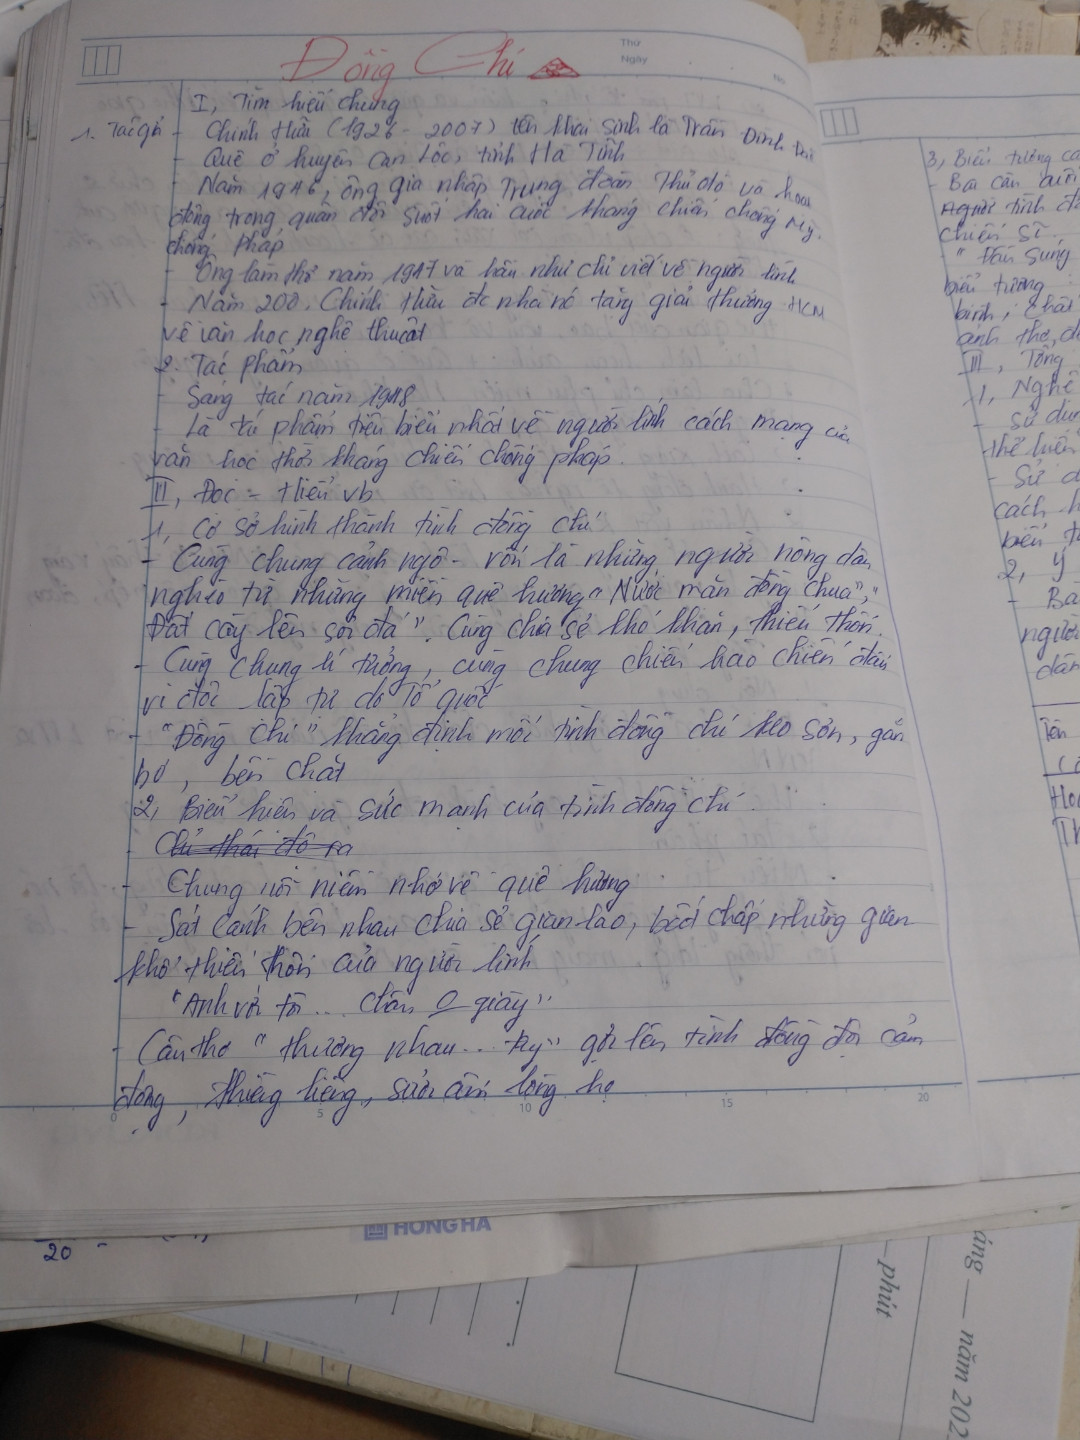 Đồng Chí
Thứ
Ngày
No
I, Tìm hiểu chung
1. Tác giả - Chính Hữu (1926 - 2007) tên khai sinh là Trần Đình Đắc
- Quê ở huyện Can Lộc, tỉnh Hà Tĩnh
- Năm 1946, ông gia nhập Trung đoàn Thủ đô và hoạt
động trong quân đội suốt hai cuộc kháng chiến chống Mỹ,
chống Pháp
- Ông làm thơ năm 1947 và hầu như chỉ viết về người lính
- Năm 200. Chính Hữu đc nhà nc tặng giải thưởng HCM
về văn học nghệ thuật
2. Tác phẩm
- Sáng tác năm 1948
- Là tác phẩm tiêu biểu nhất về người lính cách mạng của
văn học thời kháng chiến chống pháp.
II, Đọc - Hiểu vb
1, Cơ sở hình thành tình đồng chí
- Cùng chung cảnh ngộ - vốn là những người nông dân
nghèo từ những miền quê hương "Nước mặn đồng chua",
Đất cày lên sỏi đá". Cùng chia sẻ khó khăn, thiếu thốn.
- Cùng chung lí tưởng, cùng chung chiến hào chiến đấu
vì độc lập tự do Tổ quốc
- "Đồng chí" khẳng định mối tình đồng chí keo sơn, gắn
bó, bền chặt
2, Biểu hiện và sức mạnh của tình đồng chí
- Chung nỗi niềm nhớ về quê hương
- Sát cánh bên nhau chia sẻ gian lao, bất chấp những gian
khổ thiếu thốn của người lính
"Anh với tôi ... chân 0 giày"
- Câu thơ "thương nhau... tay" gợi lên tình đồng đội cảm
động, thiêng liêng, sưởi ấm lòng họ
0 5 10 15 20
3, Biểu tượng
- Ba câu cuối
Người lính
chiến sĩ.
- "Đầu súng
biểu tượng
bình, chất
ảnh thơ,
III, Tổng
1, Nghệ
- Sử dụng
thể hiện
- Sử
cách
biến
2, Ý
- Bà
người
dân
Tên
HONG HA
20
phút
năm 202